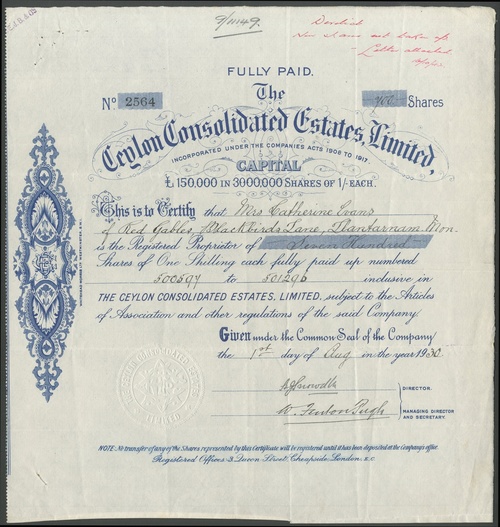 FULLY PAID.
No 2564
700 Shares
The
Ceylon Consolidated Estates, Limited,
INCORPORATED UNDER THE COMPANIES ACTS 1908 TO 1917.
CAPITAL
£150,000 IN 3000,000 SHARES OF 1/- EACH.
This is to Certify that Mrs Catherine Evans
of Red Gables, Blackbirds Lane, Llantarnam Mon.
is the Registered Proprietor of Seven Hundred
Shares of One Shilling each fully paid up numbered
500597 to 501296 inclusive in
THE CEYLON CONSOLIDATED ESTATES, LIMITED, subject to the Articles
of Association and other regulations of the said Company.
Given under the Common Seal of the Company
the 1st day of Aug in the year 1930
DIRECTOR.
W. Fenton Pugh
MANAGING DIRECTOR
AND SECRETARY.
NOTE: No transfer of any of the Shares represented by this Certificate will be registered until it has been deposited at the Company's office.
Registered Offices: 3, Queen Street, Cheapside, London. E.C.